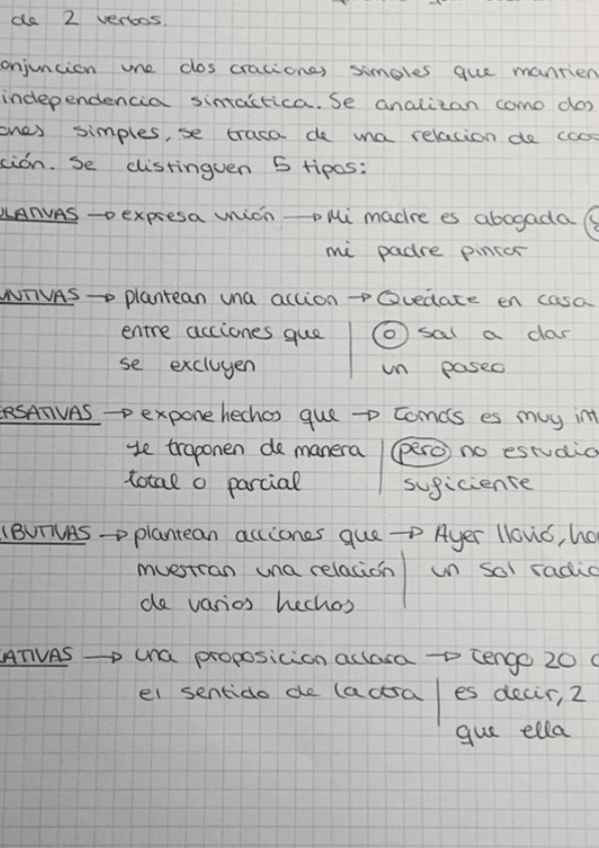 de 2 verbos.
onjuncion une dos oraciones simples que mantien
independencia sintáctica. Se analizan como dos
ones simples, se trata de una relacion de coor
ción. Se distinguen 5 tipos:
ULATIVAS → expresa unión → Mi madre es abogada y
mi padre pintor
UNTIVAS → plantean una accion → Quédate en casa
entre acciones que | o sal a dar
se excluyen | un paseo
ERSATIVAS → expone hechos que → Tomás es muy int
se traponen de manera | pero no estudio
total o parcial | suficiente
IBUTIVAS → plantean acciones que → Ayer llovió, ho
muestran una relación | un sol radia
de varios hechos
CATIVAS → una proposicion aclara → Tengo 20 a
el sentido de la otra | es decir, 2
que ella